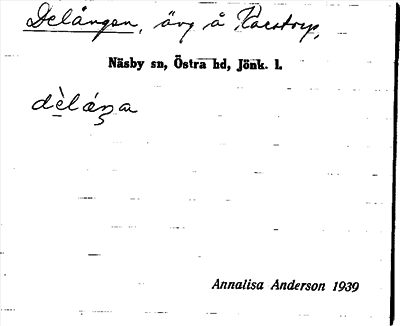 Delången, äng å Kaestorp,
Näsby sn, Östra hd, Jönk. l.
dèláŋa
Annalisa Anderson 1939